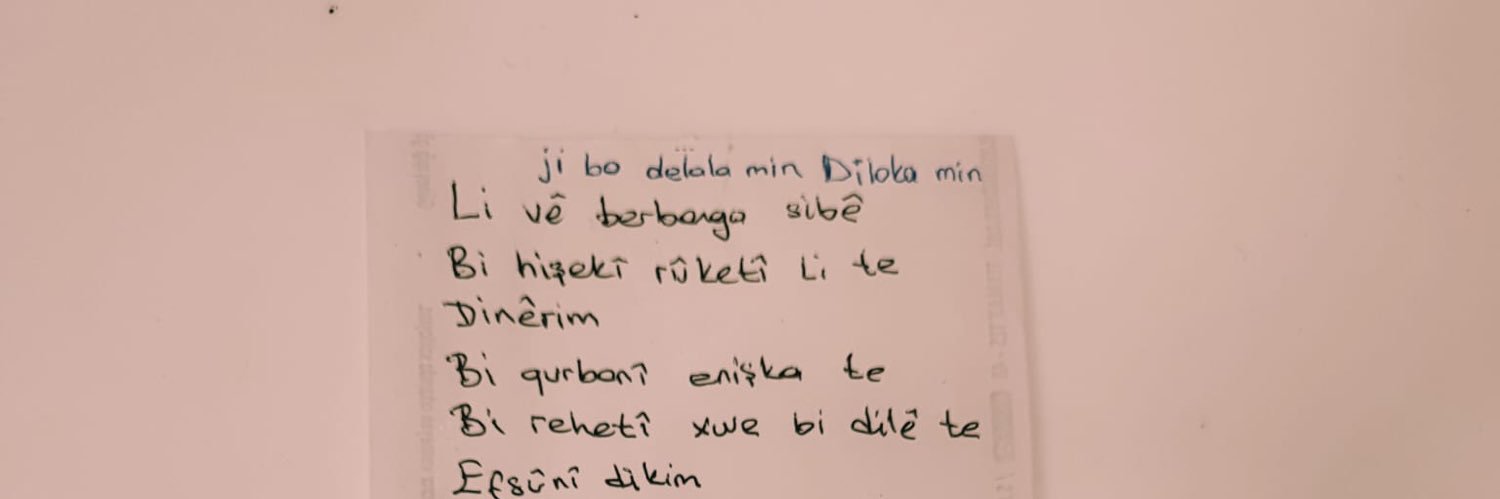 ji bo delala min Diloka min
Li vê berbanga sibê
Bi hişekî rûketî li te
Dinêrim
Bi qurbanî enişka te
Bi rehetî xwe bi dilê te
Efsûnî dikim